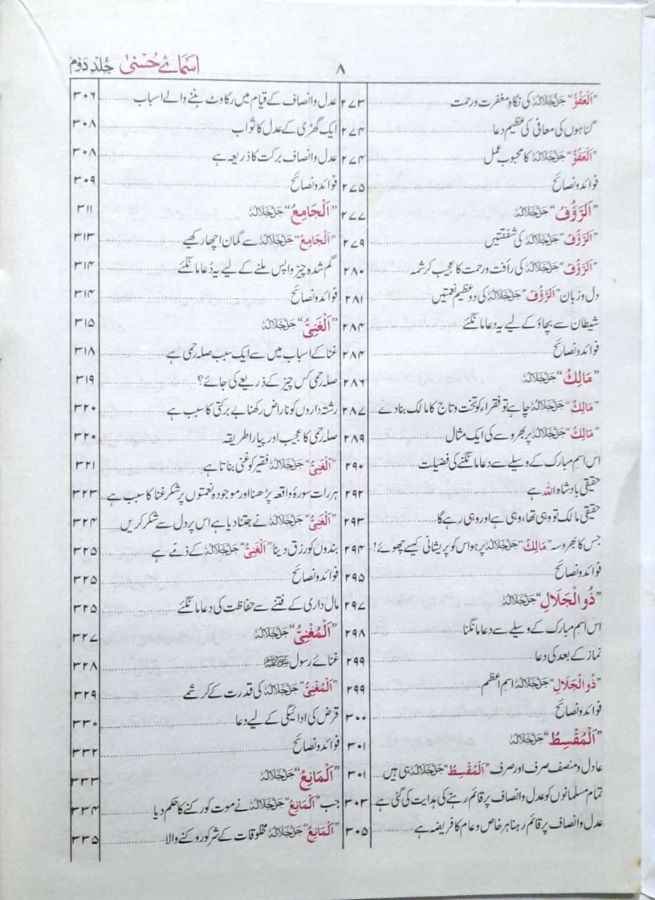 اسمائے حُسنیٰ جلد دوم
۸
"اَلْعَفُوُّ" جل جلالہ کی نگاہِ مغفرت ورحمت ۲۷۳
گناہوں کی معافی کی عظیم دعا ۲۷۴
"اَلْعَفُوُّ" جل جلالہ کا محبوب عمل ۲۷۴
فوائد و نصائح ۲۷۵
"اَلرَّؤُفُ" جل جلالہ ۲۷۷
"اَلرَّؤُفُ" جل جلالہ کی شفقتیں ۲۷۹
"اَلرَّؤُفُ" جل جلالہ کی رأفت ورحمت کا عجیب کرشمہ ۲۸۰
دل وزبان "اَلرَّؤُفُ" جل جلالہ کی دو عظیم نعمتیں ۲۸۱
شیطان سے بچاؤ کے لیے یہ دعا مانگئے ۲۸۴
فوائد و نصائح ۲۸۴
"مَالِكُ" جل جلالہ ۲۸۶
"مَالِكُ" جل جلالہ چاہے تو فقراء کو تخت وتاج کا مالک بنادے ۲۸۷
"مَالِكُ" جل جلالہ پر بھروسے کی ایک مثال ۲۸۹
اس اسمِ مبارک کے وسیلے سے دعا مانگنے کی فضیلت ۲۹۰
حقیقی بادشاہ اللہ ہے ۲۹۲
حقیقی مالک تو وہی تھا، وہی ہے اور وہی رہے گا ۲۹۳
جس کا بھروسہ "مَالِكُ" جل جلالہ پر ہو اس کو پریشانی کیسے چھوئے! ۲۹۴
فوائد و نصائح ۲۹۵
"ذُو الْجَلَالِ" جل جلالہ ۲۹۷
اس اسمِ مبارک کے وسیلے سے دعا مانگنا ۲۹۸
نماز کے بعد کی دعا ۲۹۹
"ذُو الْجَلَالِ" جل جلالہ اسم اعظم ۲۹۹
فوائد و نصائح ۳۰۰
"اَلْمُقْسِطُ" جل جلالہ ۳۰۱
عادل و منصف صرف اور صرف "اَلْمُقْسِطُ" جل جلالہ ہی ہیں ۳۰۱
تمام مسلمانوں کو عدل و انصاف پر قائم رہنے کی ہدایت کی گئی ہے ۳۰۳
عدل و انصاف پر قائم رہنا ہر خاص و عام کا فریضہ ہے ۳۰۵
عدل و انصاف کے قیام میں رکاوٹ بننے والے اسباب ۳۰۶
ایک گھڑی کے عدل کا ثواب ۳۰۸
عدل و انصاف برکت کا ذریعہ ہے ۳۰۸
فوائد و نصائح ۳۰۹
"اَلْجَامِعُ" جل جلالہ ۳۱۱
"اَلْجَامِعُ" جل جلالہ سے گمان اچھا رکھیے ۳۱۳
گم شدہ چیز واپس ملنے کے لیے یہ دعا مانگئے ۳۱۴
فوائد و نصائح ۳۱۴
"اَلْغَنِیُّ" جل جلالہ ۳۱۵
غنا کے اسباب میں سے ایک سبب صلہ رحمی ہے ۳۱۸
صلہ رحمی کس چیز کے ذریعے کی جائے؟ ۳۱۹
رشتہ داروں کو ناراض رکھنا بے برکتی کا سبب ہے ۳۲۰
صلہ رحمی کا عجیب اور پیارا طریقہ ۳۲۰
"اَلْغَنِیُّ" جل جلالہ فقیر کو غنی بناتا ہے ۳۲۱
ہر رات سورۂ واقعہ پڑھنا اور موجودہ نعمتوں پر شکر غنا کا سبب ہے ۳۲۳
"اَلْغَنِیُّ" جل جلالہ نے جتنا دیا ہے اس پر دل سے شکر کریں ۳۲۴
بندوں کو رزق دینا "اَلْغَنِیُّ" جل جلالہ کے ذمّے ہے ۳۲۵
فوائد و نصائح ۳۲۵
مال داری کے فتنے سے حفاظت کی دعا مانگئے ۳۲۵
"اَلْمُغْنِیُّ" جل جلالہ ۳۲۷
غنائے رسول ﷺ ۳۲۸
"اَلْمُغْنِیُّ" جل جلالہ کی قدرت کے کرشمے ۳۲۹
قرض کی ادائیگی کے لیے دعا ۳۳۰
فوائد و نصائح ۳۳۲
"اَلْمَانِعُ" جل جلالہ ۳۳۳
جب "اَلْمَانِعُ" جل جلالہ نے موت کو رکنے کا حکم دیا ۳۳۴
"اَلْمَانِعُ" جل جلالہ مخلوقات کے شر کو روکنے والا ۳۳۵